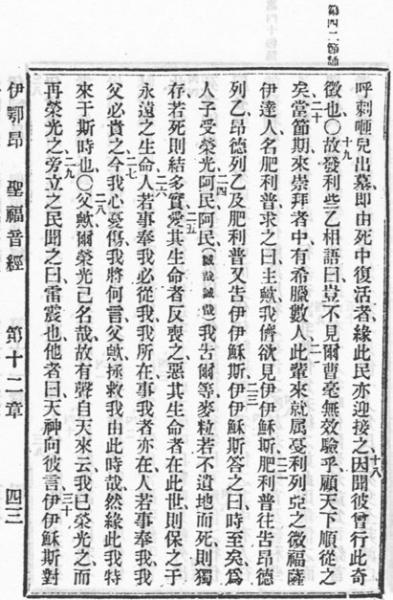 呼剌匝兒出墓、即由死中復活者、緣此民亦迎接之、十八因聞彼曾行此奇
徵也〇十九故發利些乙相語曰豈不見爾曹毫無效驗乎顧天下順從之
矣二十當節期來崇拜者中有希臘數人二一此輩來就屬戞利列亞之微福薩
伊達人名肥利普求之曰主歟我儕欲見伊伊穌斯二二肥利普往告昂德
列乙昂德列乙及肥利普又告伊伊穌斯二三伊伊穌斯答之曰時至矣爲
人子受榮光二四阿民阿民(誠哉誠哉)我告爾等麥粒若不遺地而死則獨
存若死則結多實二五愛其生命者反喪之惡其生命者在此世則保之于
永遠之生命二六人若事奉我必從我我所在事我者亦在人若事奉我我
父必貴之二七今我心憂傷我將何言父歟拯救我由此時哉然緣此我特
來于斯時也〇二八父歟爾榮光己名哉故有聲自天來云我已榮光之而
再榮光之二九旁立之民聞之曰雷震也他者曰天神向彼言三十伊伊穌斯對
伊鄂昂 聖福音經 第十二章 四三